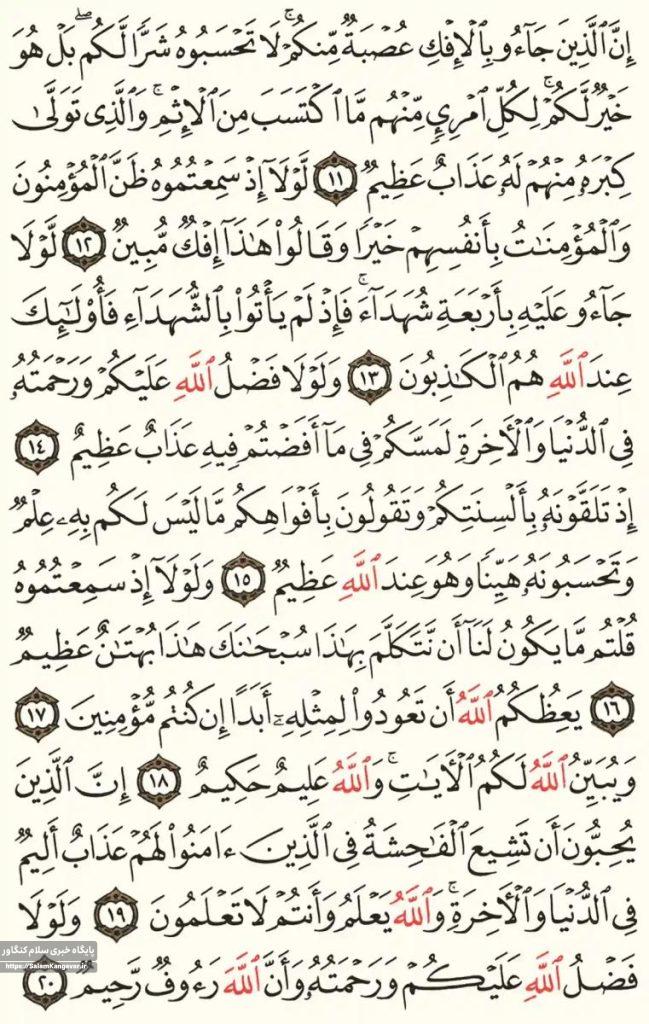 إِنَّ ٱلَّذِينَ جَآءُو بِٱلۡإِفۡكِ عُصۡبَةٞ مِّنكُمۡۚ لَا تَحۡسَبُوهُ شَرّٗا لَّكُمۖ بَلۡ هُوَ
خَيۡرٞ لَّكُمۡۚ لِكُلِّ ٱمۡرِيٕٖ مِّنۡهُم مَّا ٱكۡتَسَبَ مِنَ ٱلۡإِثۡمِۚ وَٱلَّذِي تَوَلَّىٰ
كِبۡرَهُۥ مِنۡهُمۡ لَهُۥ عَذَابٌ عَظِيمٞ ١١ لَّوۡلَآ إِذۡ سَمِعۡتُمُوهُ ظَنَّ ٱلۡمُؤۡمِنُونَ
وَٱلۡمُؤۡمِنَٰتُ بِأَنفُسِهِمۡ خَيۡرٗا وَقَالُواْ هَٰذَآ إِفۡكٞ مُّبِينٞ ١٢ لَّوۡلَا
جَآءُو عَلَيۡهِ بِأَرۡبَعَةِ شُهَدَآءَۚ فَإِذۡ لَمۡ يَأۡتُواْ بِٱلشُّهَدَآءِ فَأُوْلَٰٓئِكَ
عِندَ ٱللَّهِ هُمُ ٱلۡكَٰذِبُونَ ١٣ وَلَوۡلَا فَضۡلُ ٱللَّهِ عَلَيۡكُمۡ وَرَحۡمَتُهُۥ
فِي ٱلدُّنۡيَا وَٱلۡأٓخِرَةِ لَمَسَّكُمۡ فِي مَآ أَفَضۡتُمۡ فِيهِ عَذَابٌ عَظِيمٌ ١٤
إِذۡ تَلَقَّوۡنَهُۥ بِأَلۡسِنَتِكُمۡ وَتَقُولُونَ بِأَفۡوَاهِكُم مَّا لَيۡسَ لَكُم بِهِۦ عِلۡمٞ
وَتَحۡسَبُونَهُۥ هَيِّنٗا وَهُوَ عِندَ ٱللَّهِ عَظِيمٞ ١٥ وَلَوۡلَآ إِذۡ سَمِعۡتُمُوهُ
قُلۡتُم مَّا يَكُونُ لَنَآ أَن نَّتَكَلَّمَ بِهَٰذَا سُبۡحَٰنَكَ هَٰذَا بُهۡتَٰنٌ عَظِيمٞ
١٦ يَعِظُكُمُ ٱللَّهُ أَن تَعُودُواْ لِمِثۡلِهِۦٓ أَبَدًا إِن كُنتُم مُّؤۡمِنِينَ ١٧
وَيُبَيِّنُ ٱللَّهُ لَكُمُ ٱلۡأٓيَٰتِۚ وَٱللَّهُ عَلِيمٌ حَكِيمٌ ١٨ إِنَّ ٱلَّذِينَ
يُحِبُّونَ أَن تَشِيعَ ٱلۡفَٰحِشَةُ فِي ٱلَّذِينَ ءَامَنُواْ لَهُمۡ عَذَابٌ أَلِيمٞ
فِي ٱلدُّنۡيَا وَٱلۡأٓخِرَةِۚ وَٱللَّهُ يَعۡلَمُ وَأَنتُمۡ لَا تَعۡلَمُونَ ١٩ وَلَوۡلَا
فَضۡلُ ٱللَّهِ عَلَيۡكُمۡ وَرَحۡمَتُهُۥ وَأَنَّ ٱللَّهَ رَءُوفٞ رَّحِيمٞ ٢٠
پایگاه خبری سلام کنگاور
https://SalamKangavar.ir